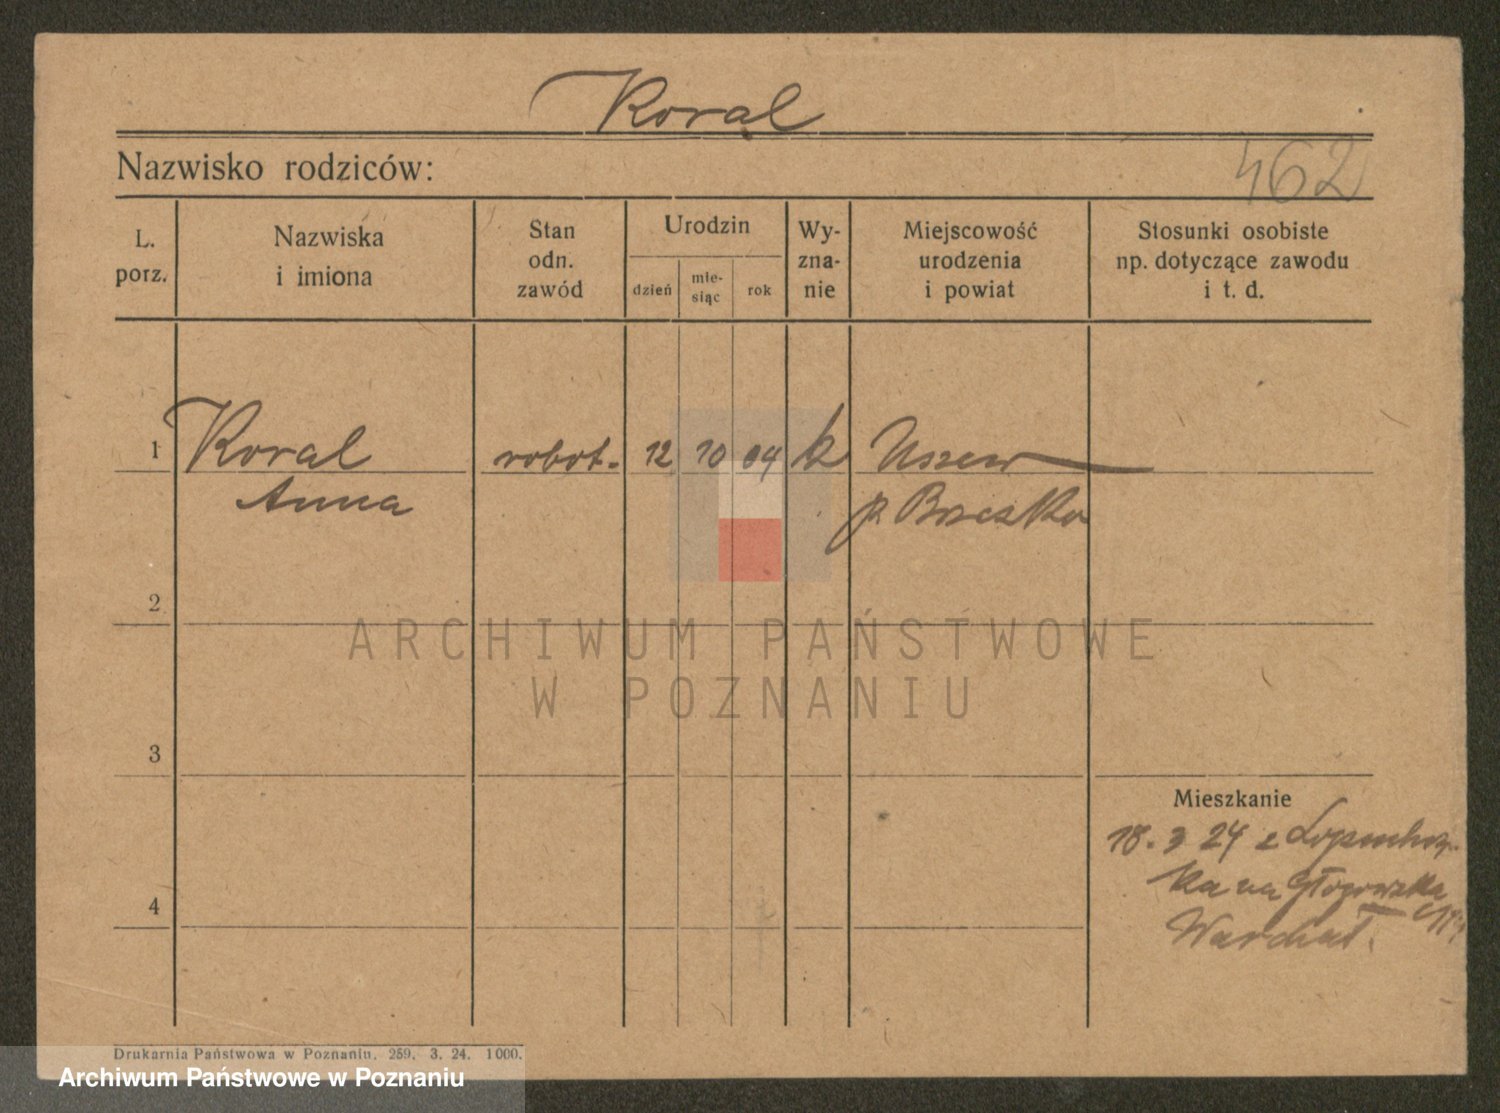 Koral
Nazwisko rodziców:
462
L. porz.
Nazwiska i imiona
Stan odn. zawód
Urodzin
dzień
mie-
siąc
rok
Wy-
zna-
nie
Miejscowość
urodzenia
i powiat
Stosunki osobiste
np. dotyczące zawodu
i t. d.
1 Koral robot. 12 10 04 k Uszew
Anna p. Brzesko
2
ARCHIWUM PAŃSTWOWE
W POZNANIU
3
Mieszkanie
18. 3 24 z
ka na Głogowska
4
Warchat.
Drukarnia Państwowa w Poznaniu. 259. 3. 24. 1000.
Archiwum Państwowe w Poznaniu